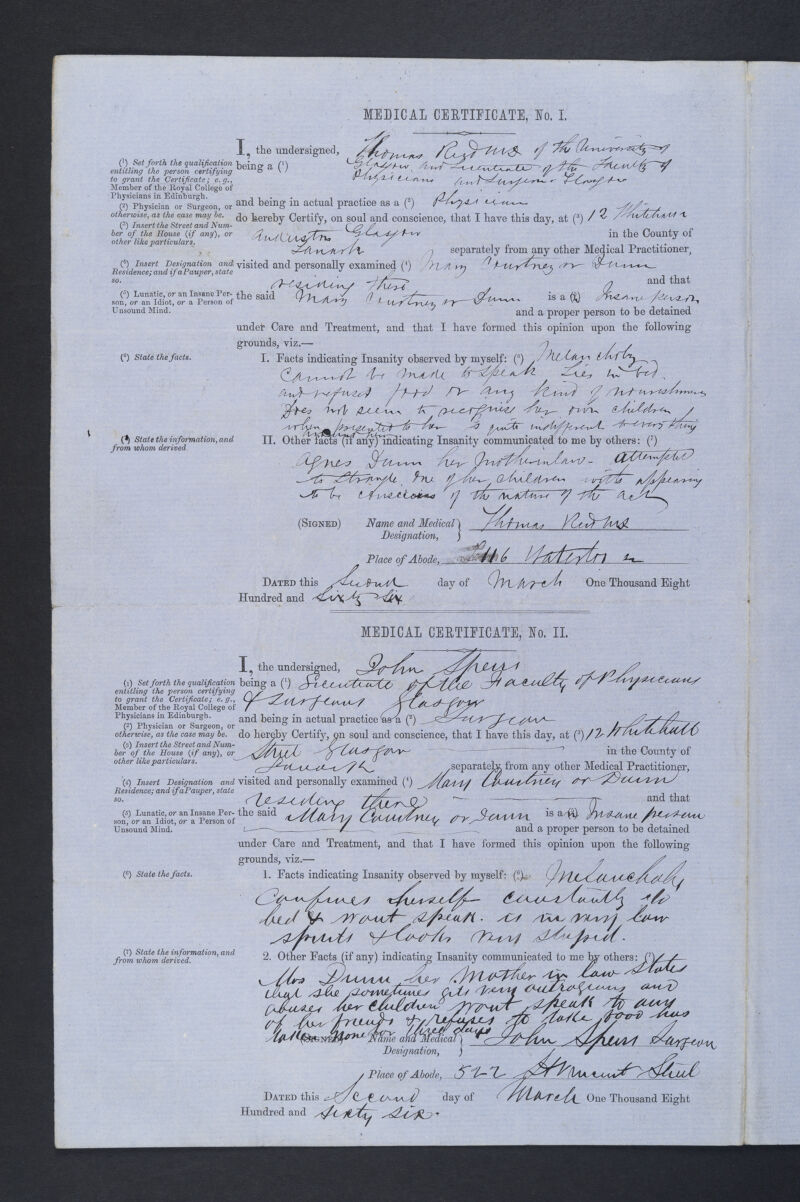 MEDICAL CERTIFICATE, No. I.
I, the undersigned, Thomas Reid MD of the University of
being a (¹) Glasgow and Licentiate of the Faculty of
Physicians and Surgeons Glasgow
and being in actual practice as a (²) Physician
do hereby Certify, on soul and conscience, that I have this day, at (³) 12 Whitehall
Anderston Glasgow in the County of
Lanark separately from any other Medical Practitioner,
visited and personally examined (⁴) Mary Courtney or Dunn
residing there and that
the said Mary Courtney or Dunn is a (⁵) Insane person
and a proper person to be detained
under Care and Treatment, and that I have formed this opinion upon the following
grounds, viz.—
I. Facts indicating Insanity observed by myself: (⁶) Melancholy
Cannot be made to speak Lies in bed
and refuses food or any kind of nourishment
Does not seem to recognise her own children
when presented to her Is quite indifferent to everything
around her
II. Other facts (if any) indicating Insanity communicated to me by others: (⁷)
Agnes Dunn her mother in law - attempted
to strangle one of her children with appearing
to be conscious of the nature of the act
(SIGNED) Name and Medical Designation, Thomas Reid MD
Place of Abode, 116 Waterloo
DATED this Second day of March One Thousand Eight
Hundred and Sixty Six
(¹) Set forth the qualification
entitling the person certifying
to grant the Certificate; e. g.,
Member of the Royal College of
Physicians in Edinburgh.
(²) Physician or Surgeon, or
otherwise, as the case may be.
(³) Insert the Street and Num-
ber of the House (if any), or
other like particulars.
(⁴) Insert Designation and
Residence; and if a Pauper, state
so.
(⁵) Lunatic, or an Insane Per-
son, or an Idiot, or a Person of
Unsound Mind.
(⁶) State the facts.
(⁷) State the information, and
from whom derived.
MEDICAL CERTIFICATE, No. II.
I, the undersigned, John Speirs
being a (¹) Licentiate of the Faculty of Physicians
& Surgeons Glasgow
and being in actual practice as a (²) Surgeon
do hereby Certify, on soul and conscience, that I have this day, at (³) 12 Whitehall
Street Glasgow in the County of
Lanark separately from any other Medical Practitioner,
visited and personally examined (⁴) Mary Courtney or Dunn
residing there and that
the said Mary Courtney or Dunn is a (⁵) Insane person
and a proper person to be detained
under Care and Treatment, and that I have formed this opinion upon the following
grounds, viz.—
1. Facts indicating Insanity observed by myself: (⁶) Melancholy
Confines herself constantly to
bed & wont speak. is in very low
spirits & looks very stupid.
2. Other Facts (if any) indicating Insanity communicated to me by others: (⁷)
Mrs Dunn her Mother in law States
that she sometimes gets very outrageous and
abuses her children wont speak to any
of her friends & refuses to take food has
taken none for three days
(SIGNED) Name and Medical Designation, John Speirs Surgeon
Place of Abode, 522 St Vincent Street
DATED this Second day of March One Thousand Eight
Hundred and Sixty Six.
(¹) Set forth the qualification
entitling the person certifying
to grant the Certificate; e. g.,
Member of the Royal College of
Physicians in Edinburgh.
(²) Physician or Surgeon, or
otherwise, as the case may be.
(³) Insert the Street and Num-
ber of the House (if any), or
other like particulars.
(⁴) Insert Designation and
Residence; and if a Pauper, state
so.
(⁵) Lunatic, or an Insane Per-
son, or an Idiot, or a Person of
Unsound Mind.
(⁶) State the facts.
(⁷) State the information, and
from whom derived.